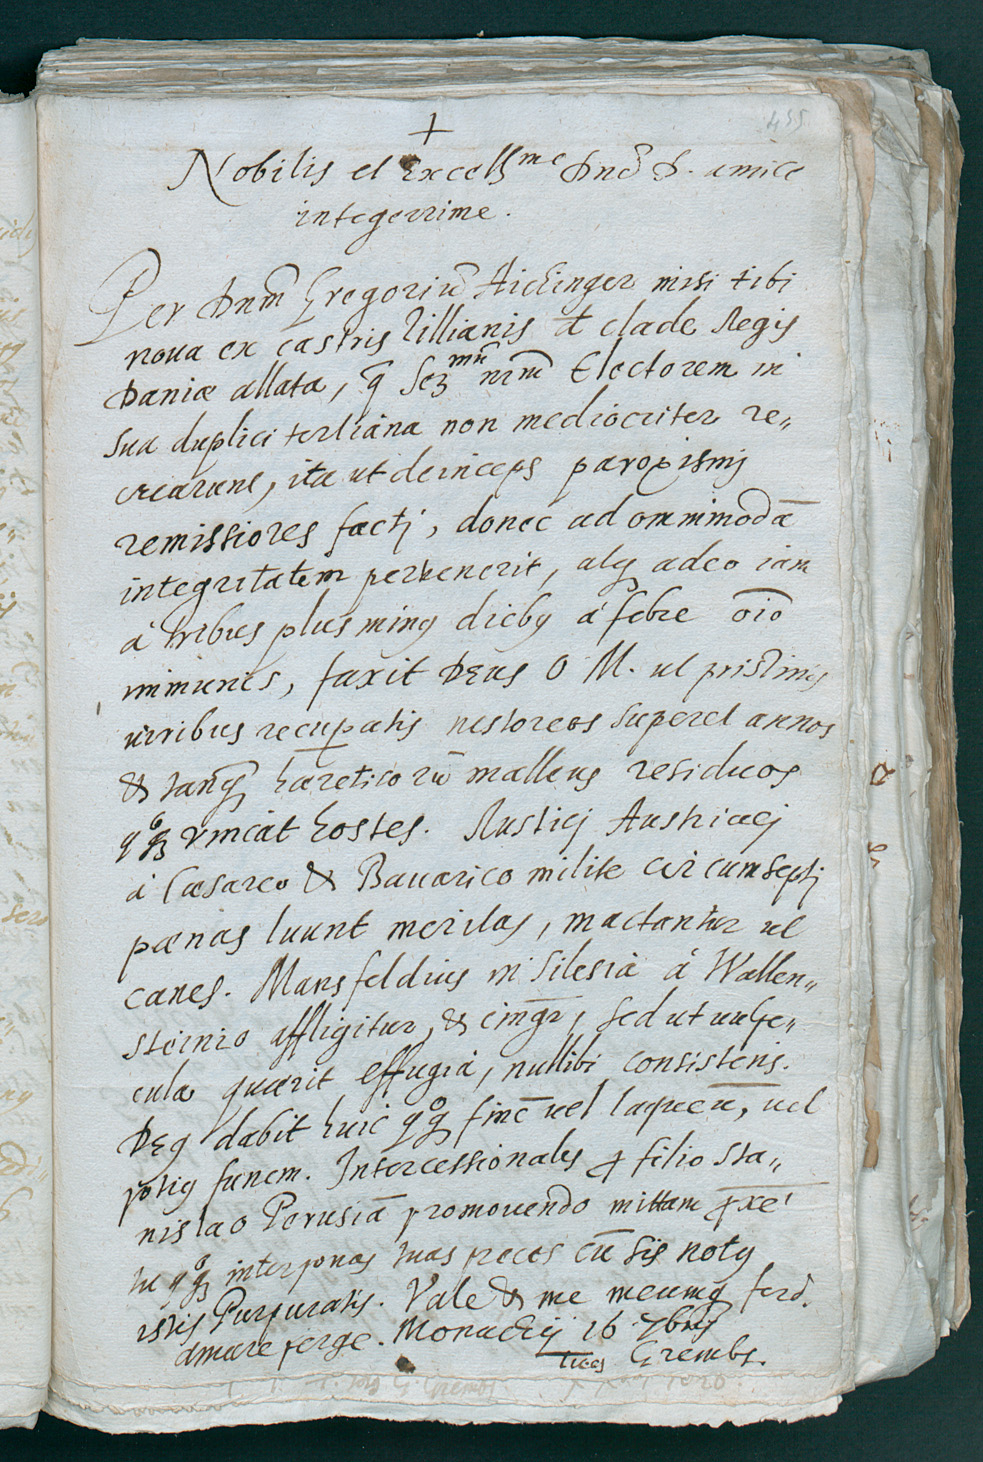 455
+
Nobilis et Excellme Dnē D. amice
integerrime.
Per Dnm Gregoriū Aichinger misi tibi
noua ex castris Tillianis de clade Regis
Daniæ allata, q̄ Serm̄um nrm̄ Electorem in
sua duplici tertiana non mediocriter re„
crearunt, ita ut deinceps paroxismj
remissiores factj, donec ad ommimodā
integritatem peruenerit, atq adeo iam
à tribus plus minq diebq á febre oīo
immunis, faxit DEus O M. ut pristinis
viribus recuperatis nestoreos superet annos
& tanq̄ hæreticorū malleus residuos
qoq vincat hostes. Rusticj Austriacj
à Cæsareo & Bauarico milite circumseptj
pœnas luunt meritas, mactantur ut
canes. Mansfeldius in Silesia á Wallen„
steinio affligitur, & cingr̄, sed ut uulpe„
cula quærit effugia, nullibi consistens.
DEq dabit huic qoq finē uel laqueū, uel
potiq funem. Intercessionales p filio Sta„
nislao Perusiā promouendo mittam pxē
tu qoq interponas tuas preces cū sis notq
istis Purpuratis. Vale & me meumq ferd.
amare perge. Monachij 16 7bris
tuus Grembs.